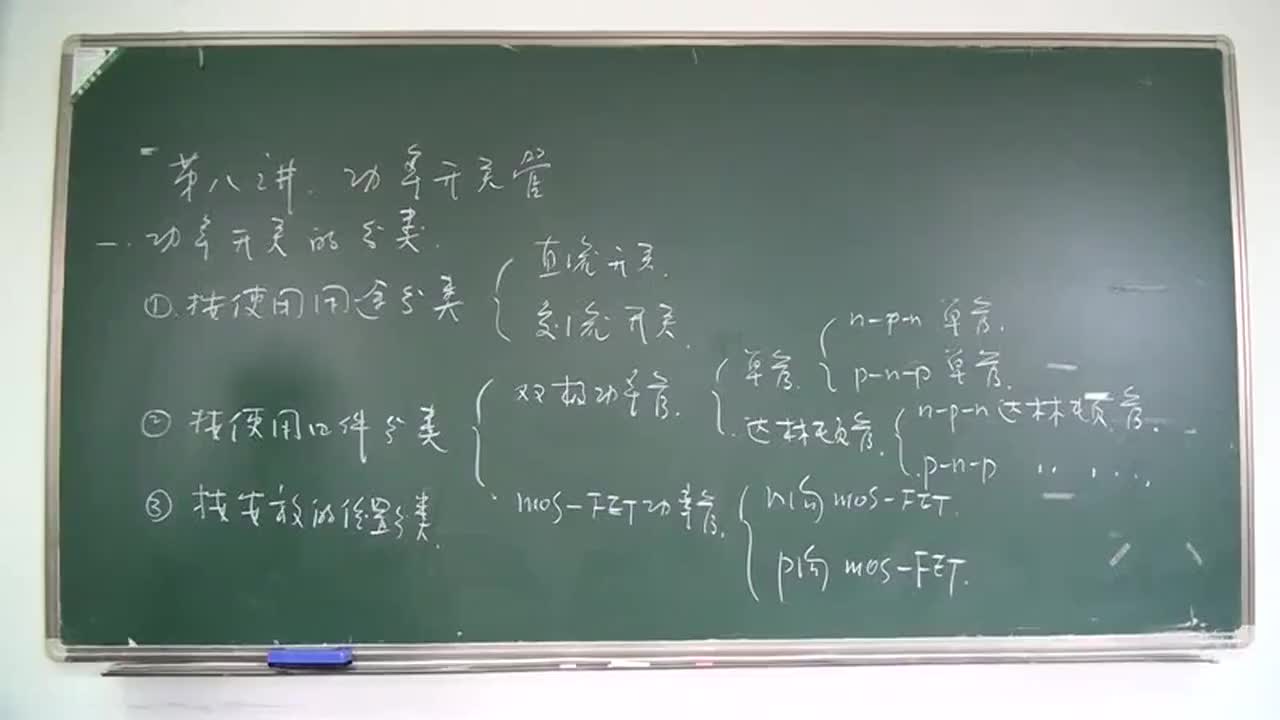 第八讲. 功率开关管
一. 功率开关的分类.
①. 按使用用途分类
直流开关.
交流开关.
② 按使用四件分类
双极功率管.
单管.
n-p-n 单管.
p-n-p 单管.
达林顿管.
n-p-n 达林顿管.
p-n-p ·· · · · ·,
mos-FET功率管.
n沟 mos-FET.
p沟 mos-FET.
③ 按安放的位置分类.